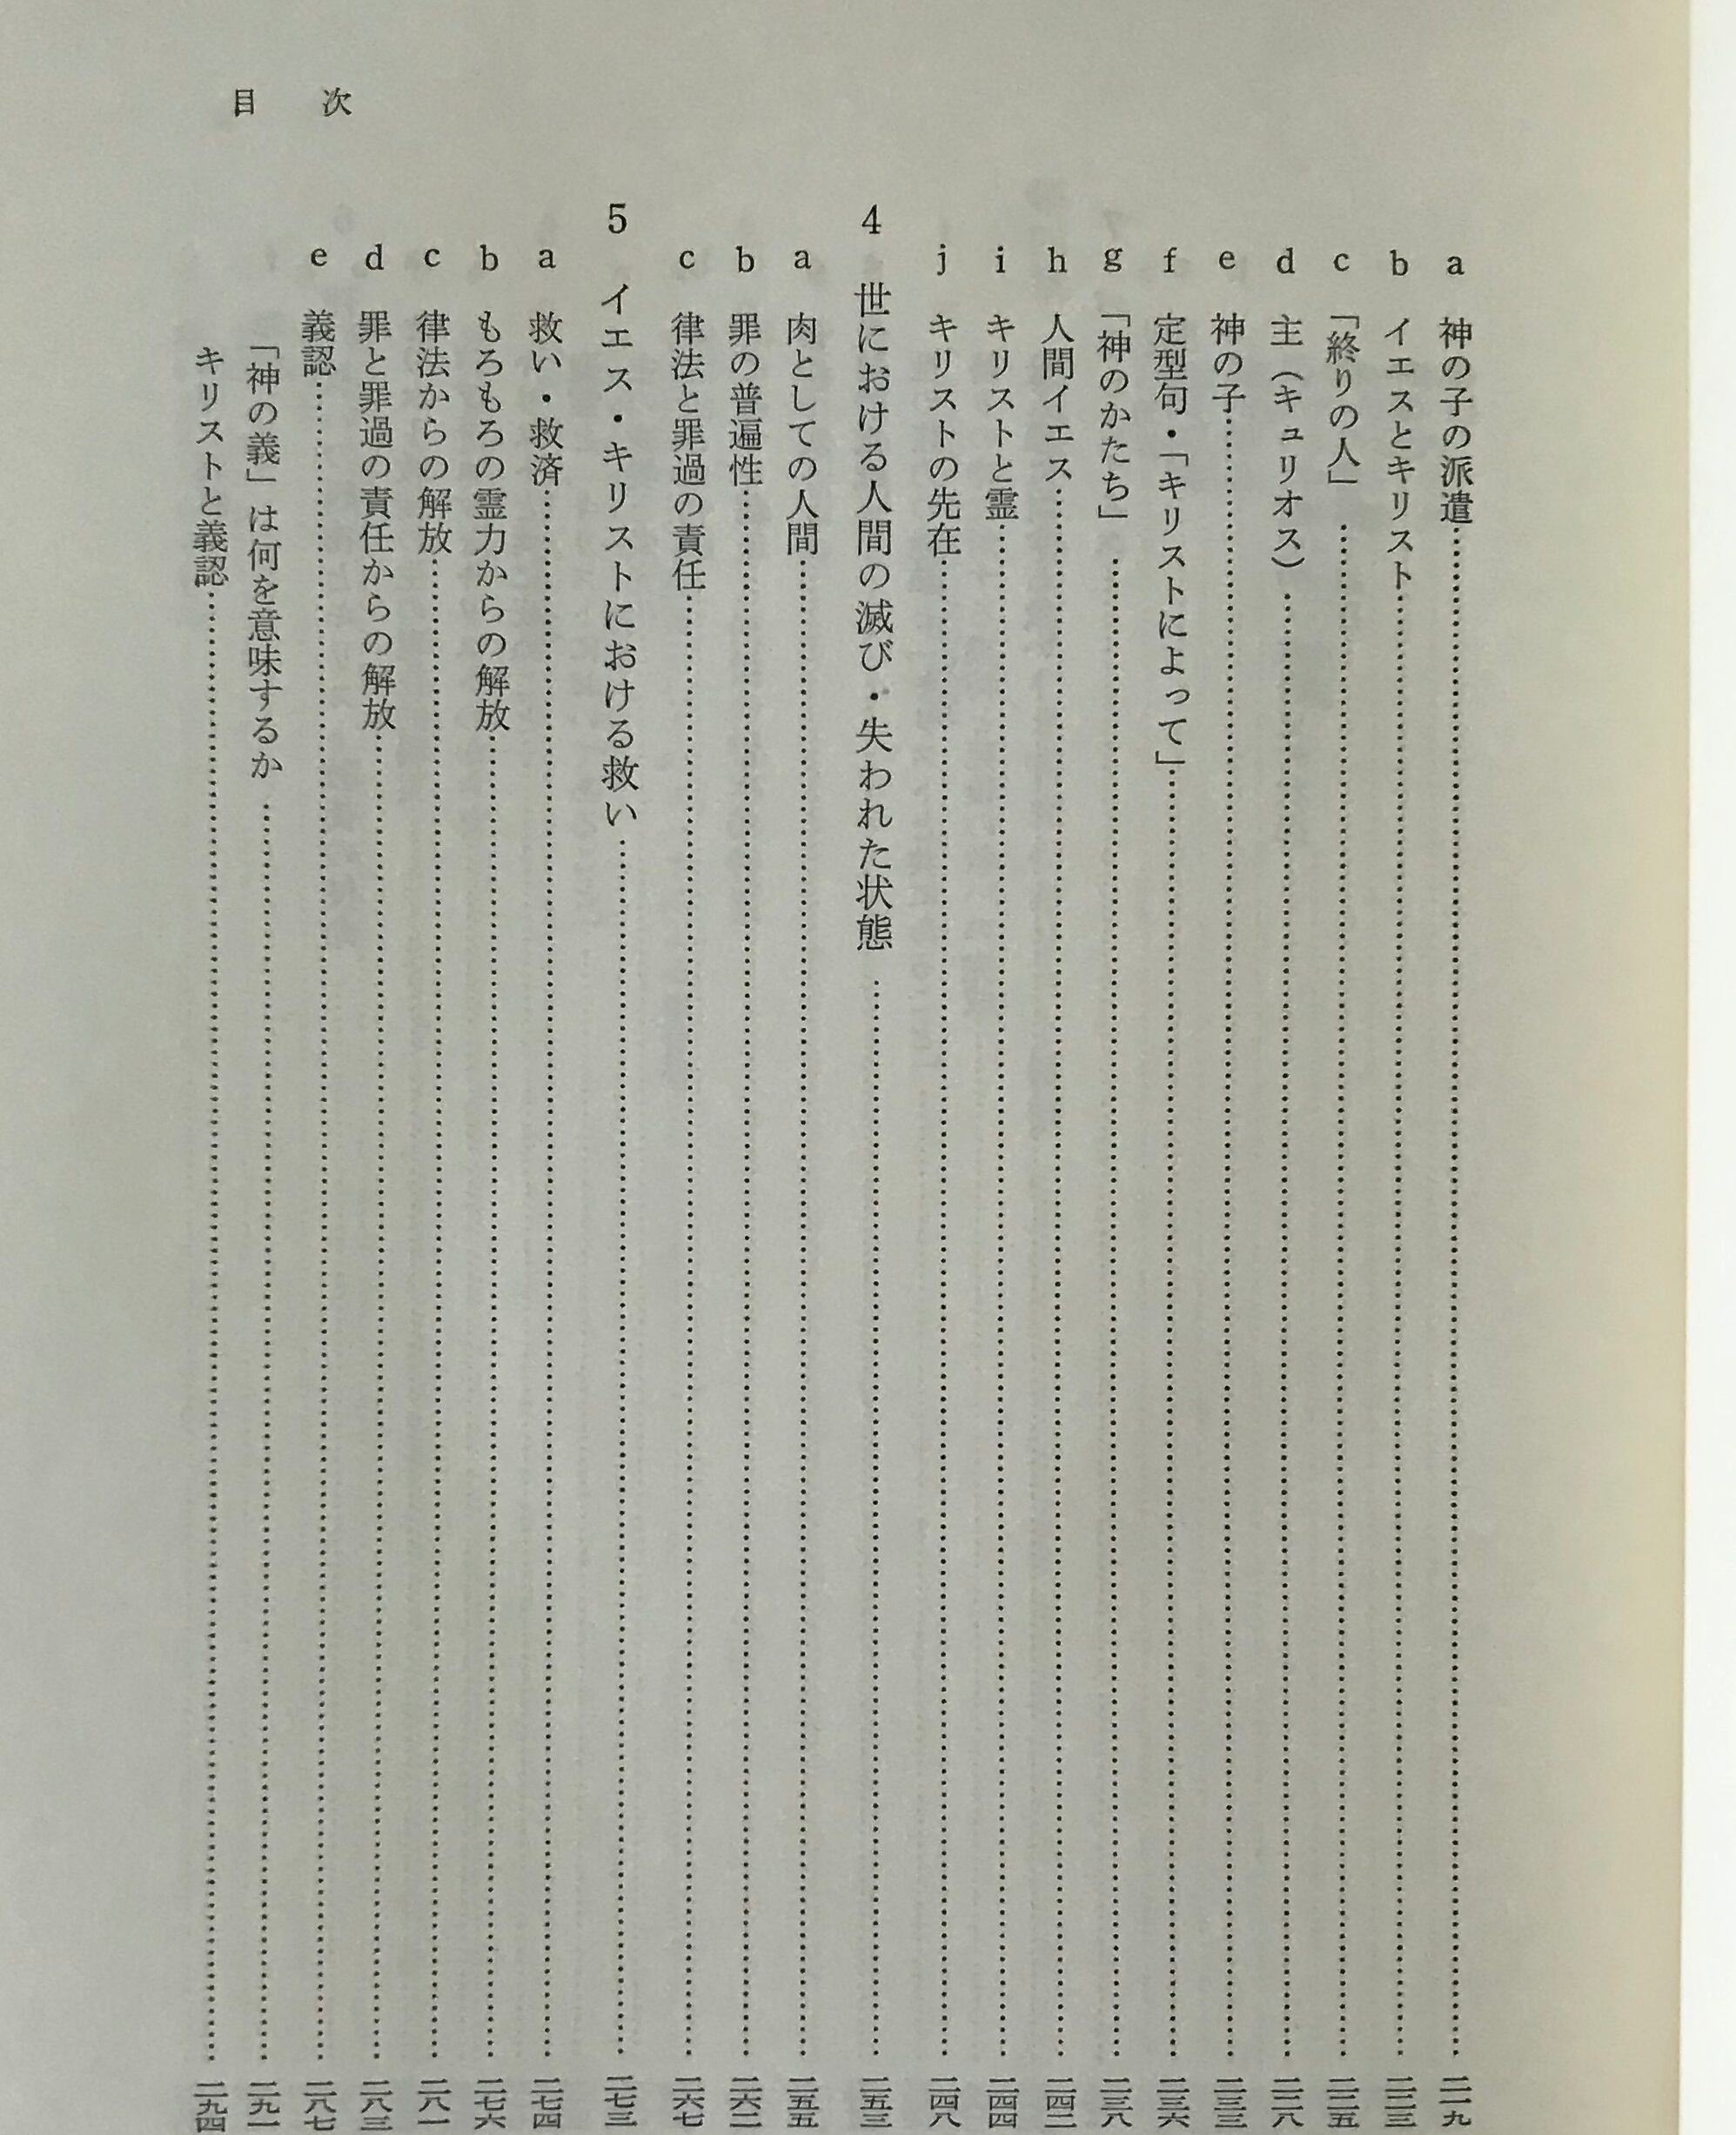 目次
a 神の子の派遣……二一九
b イエスとキリスト……二二三
c 「終りの人」……二二五
d 主（キュリオス）……二二八
e 神の子……二三三
f 定型句・「キリストによって」……二三六
g 「神のかたち」……二三八
h 人間イエス……二四二
i キリストと霊……二四四
j キリストの先在……二四八
4 世における人間の滅び・失われた状態……二五三
a 肉としての人間……二五五
b 罪の普遍性……二六二
c 律法と罪過の責任……二六七
5 イエス・キリストにおける救い……二七三
a 救い・救済……二七四
b もろもろの霊力からの解放……二七六
c 律法からの解放……二八一
d 罪と罪過の責任からの解放……二八三
e 義認……二八七
「神の義」は何を意味するか……二九一
キリストと義認……二九四